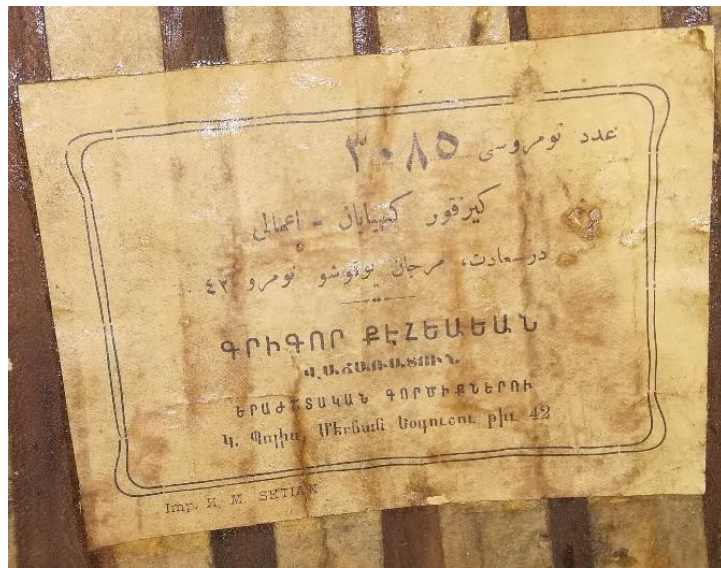 عدد نومروسی ٣٠٨٥
كيرقور كهيايان - اعمالی
درسعادت، مرجان يوقوشو نومرو ٤٢
ԳՐԻԳՈՐ ՔԷՀԵԱԵԱՆ
ՎԱՃԱՌԱՏՈՒՆ
ԵՐԱԺՇՏԱԿԱՆ ԳՈՐԾԻՔՆԵՐՈՒ
Կ. Պոլիս, Մէրճան Եօգուշու թիւ 42
Imp. H. M. SETIAN